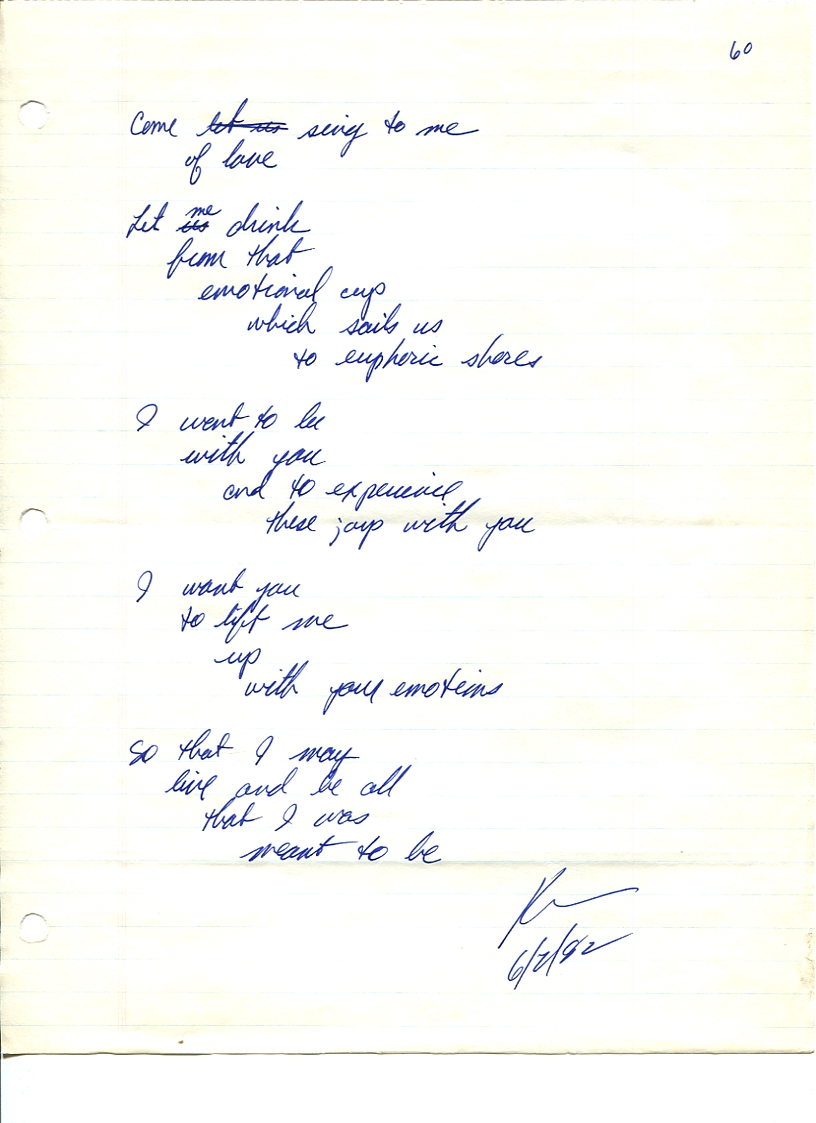 60
Come let us sing to me
of love
Let us me drink
from that
emotional cup
which sails us
to euphoric shores
I want to be
with you
and to experience
these joys with you
I want you
to lift me
up
with your emotions
So that I may
live and be all
that I was
meant to be